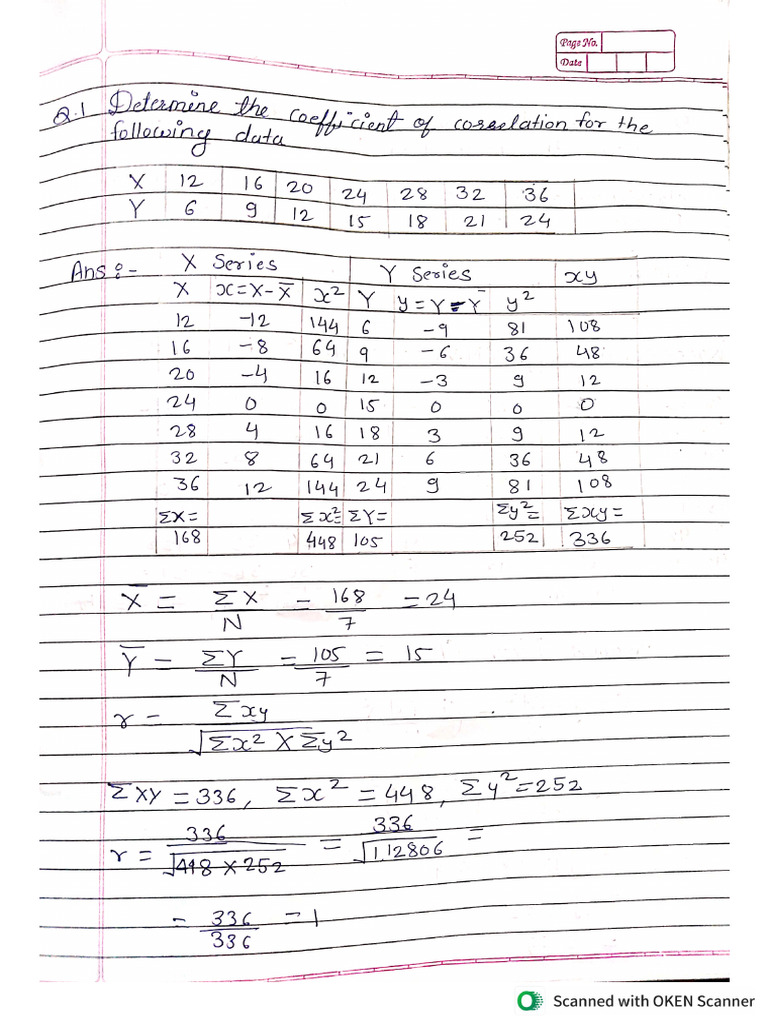 Page No.
Date
Q.1 Determine the coefficient of correlation for the
following data
X 12 16 20 24 28 32 36
Y 6 9 12 15 18 21 24
Ans :- X Series Y Series xy
X x=X-X̄ x² Y y=Y-Ȳ y²
12 -12 144 6 -9 81 108
16 -8 64 9 -6 36 48
20 -4 16 12 -3 9 12
24 0 0 15 0 0 0
28 4 16 18 3 9 12
32 8 64 21 6 36 48
36 12 144 24 9 81 108
ΣX= Σx²= ΣY= Σy²= Σxy=
168 448 105 252 336
X̄ = ΣX/N = 168/7 = 24
Ȳ = ΣY/N = 105/7 = 15
r = Σxy/√Σx² X Σy²
ΣXY = 336, Σx² = 448, Σy² = 252
r = 336/√448 X 252 = 336/√112806 =
= 336/336 = 1
Scanned with OKEN Scanner